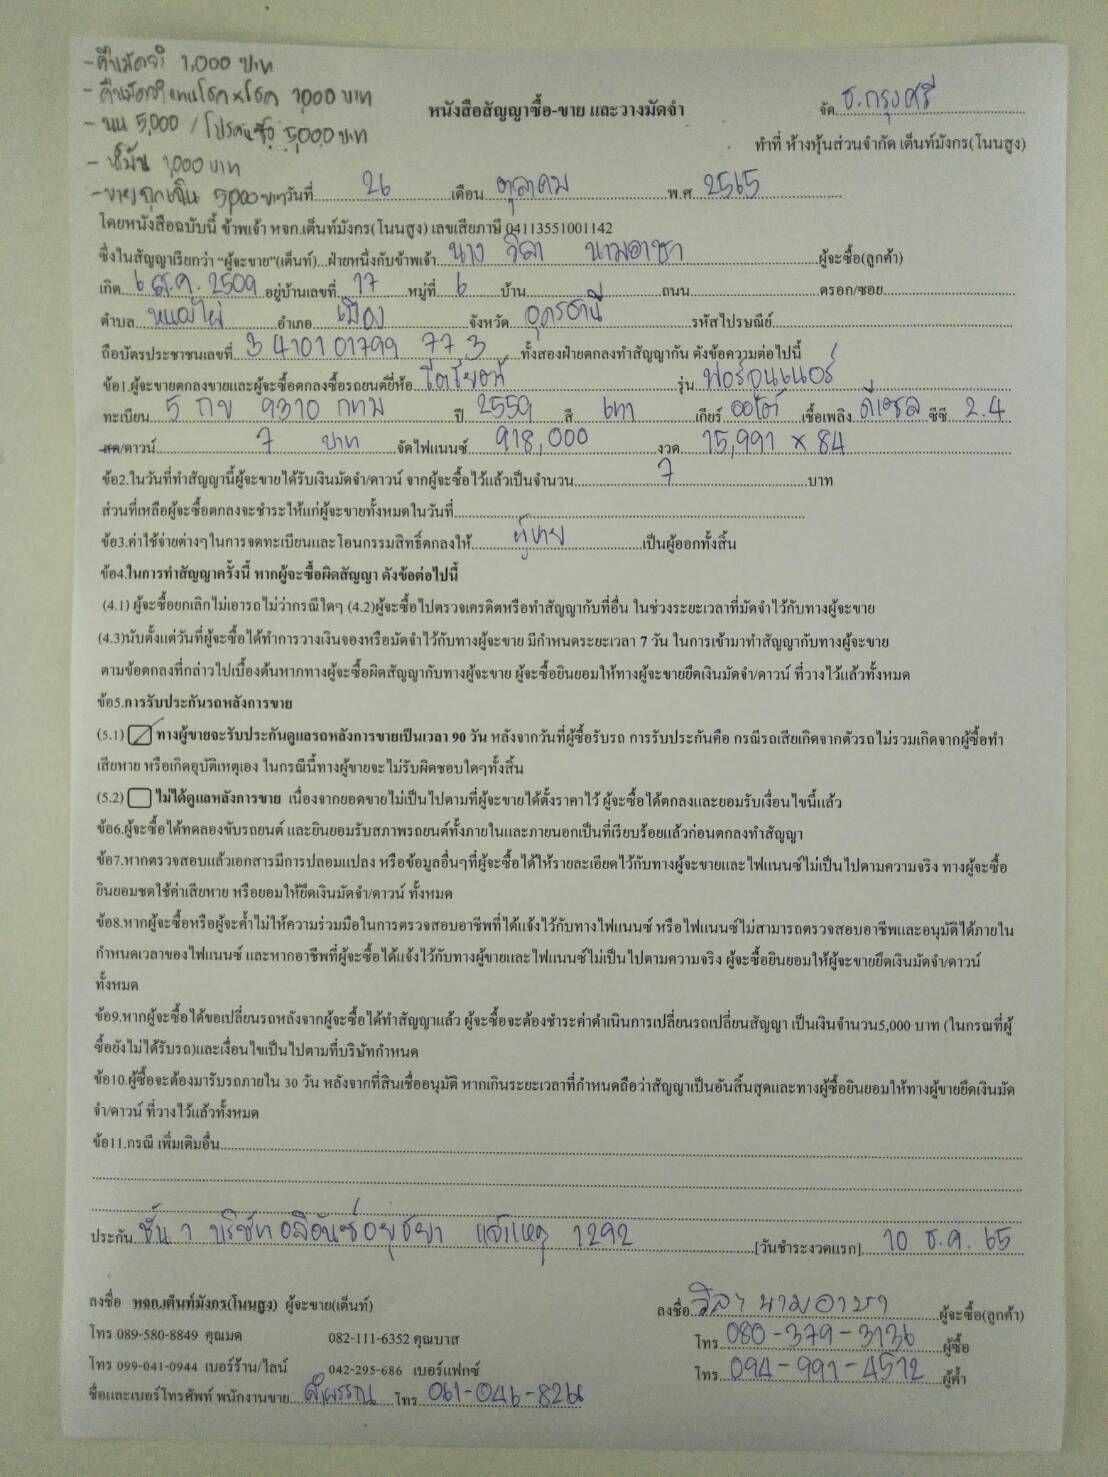 - คืนมัดจำ 1,000 บาท
- คืนมัดจำแทนโชค x โชค 1,000 บาท
- นน 5,000 / โปรคนซื้อ 5,000 บาท
- น้ำมัน 1,000 บาท
- ขายฉุกเฉิน 5,000 บาท
หนังสือสัญญาซื้อ-ขาย และวางมัดจำ
จัด ธ.กรุงศรี
ทำที่ ห้างหุ้นส่วนจำกัด เต็นท์มังกร(โนนสูง)
วันที่ 26 เดือน ตุลาคม พ.ศ. 2565
โดยหนังสือฉบับนี้ ข้าพเจ้า หจก.เต็นท์มังกร(โนนสูง) เลขเสียภาษี 04113551001142
ซึ่งในสัญญาเรียกว่า "ผู้จะขาย"(เต็นท์)...ฝ่ายหนึ่งกับข้าพเจ้า นาง วิลา นามอาษา ผู้จะซื้อ(ลูกค้า)
เกิด 6 ส.ค. 2509 อยู่บ้านเลขที่ 17 หมู่ที่ 6 บ้าน ถนน ตรอก/ซอย
ตำบล หนองไผ่ อำเภอ เมือง จังหวัด อุดรธานี รหัสไปรษณีย์
ถือบัตรประชาชนเลขที่ 3 4101 01799 77 3 ทั้งสองฝ่ายตกลงทำสัญญากัน ดังข้อความต่อไปนี้
ข้อ1.ผู้จะขายตกลงขายและผู้จะซื้อตกลงซื้อรถยนต์ยี่ห้อ โตโยต้า รุ่น ฟอร์จูนเนอร์
ทะเบียน 5 กข 9310 กทม ปี 2559 สี เทา เกียร์ ออโต้ เชื้อเพลิง ดีเซล ซีซี 2.4
สด/ดาวน์ 7 บาท จัดไฟแนนซ์ 918,000 งวด 15,991 x 84
ข้อ2.ในวันที่ทำสัญญานี้ผู้จะขายได้รับเงินมัดจำ/ดาวน์ จากผู้จะซื้อไว้แล้วเป็นจำนวน 7 บาท
ส่วนที่เหลือผู้จะซื้อตกลงจะชำระให้แก่ผู้จะขายทั้งหมดในวันที่
ข้อ3.ค่าใช้จ่ายต่างๆในการจดทะเบียนและโอนกรรมสิทธิ์ตกลงให้ ผู้ขาย เป็นผู้ออกทั้งสิ้น
ข้อ4.ในการทำสัญญาครั้งนี้ หากผู้จะซื้อผิดสัญญา ดังข้อต่อไปนี้
(4.1) ผู้จะซื้อยกเลิกไม่เอารถไม่ว่ากรณีใดๆ (4.2)ผู้จะซื้อไปตรวจเครดิตหรือทำสัญญากับที่อื่น ในช่วงระยะเวลาที่มัดจำไว้กับทางผู้จะขาย
(4.3)นับตั้งแต่วันที่ผู้จะซื้อได้ทำการวางเงินจองหรือมัดจำไว้กับทางผู้จะขาย มีกำหนดระยะเวลา 7 วัน ในการเข้ามาทำสัญญากับทางผู้จะขาย
ตามข้อตกลงที่กล่าวไปเบื้องต้นหากทางผู้จะซื้อผิดสัญญากับทางผู้จะขาย ผู้จะซื้อยินยอมให้ทางผู้จะขายยึดเงินมัดจำ/ดาวน์ ที่วางไว้แล้วทั้งหมด
ข้อ5.การรับประกันรถหลังการขาย
(5.1) ทางผู้ขายจะรับประกันดูแลรถหลังการขายเป็นเวลา 90 วัน หลังจากวันที่ผู้ซื้อรับรถ การรับประกันคือ กรณีรถเสียเกิดจากตัวรถไม่รวมเกิดจากผู้ซื้อทำ
เสียหาย หรือเกิดอุบัติเหตุเอง ในกรณีนี้ทางผู้ขายจะไม่รับผิดชอบใดๆทั้งสิ้น
(5.2) ไม่ได้ดูแลหลังการขาย เนื่องจากยอดขายไม่เป็นไปตามที่ผู้จะขายได้ตั้งราคาไว้ ผู้จะซื้อได้ตกลงและยอมรับเงื่อนไขนี้แล้ว
ข้อ6.ผู้จะซื้อได้ทดลองขับรถยนต์ และยินยอมรับสภาพรถยนต์ทั้งภายในและภายนอกเป็นที่เรียบร้อยแล้วก่อนตกลงทำสัญญา
ข้อ7.หากตรวจสอบแล้วเอกสารมีการปลอมแปลง หรือข้อมูลอื่นๆที่ผู้จะซื้อได้ให้รายละเอียดไว้กับทางผู้จะขายและไฟแนนซ์ไม่เป็นไปตามความจริง ทางผู้จะซื้อ
ยินยอมชดใช้ค่าเสียหาย หรือยอมให้ยึดเงินมัดจำ/ดาวน์ ทั้งหมด
ข้อ8.หากผู้จะซื้อหรือผู้จะค้ำไม่ให้ความร่วมมือในการตรวจสอบอาชีพที่ได้แจ้งไว้กับทางไฟแนนซ์ หรือไฟแนนซ์ไม่สามารถตรวจสอบอาชีพและอนุมัติได้ภายใน
กำหนดเวลาของไฟแนนซ์ และหากอาชีพที่ผู้จะซื้อได้แจ้งไว้กับทางผู้ขายและไฟแนนซ์ไม่เป็นไปตามความจริง ผู้จะซื้อยินยอมให้ผู้จะขายยึดเงินมัดจำ/ดาวน์
ทั้งหมด
ข้อ9.หากผู้จะซื้อได้ขอเปลี่ยนรถหลังจากผู้จะซื้อได้ทำสัญญาแล้ว ผู้จะซื้อจะต้องชำระค่าดำเนินการเปลี่ยนรถเปลี่ยนสัญญา เป็นเงินจำนวน5,000 บาท (ในกรณที่ผู้
ซื้อยังไม่ได้รับรถ)และเงื่อนไขเป็นไปตามที่บริษัทกำหนด
ข้อ10.ผู้ซื้อจะต้องมารับรถภายใน 30 วัน หลังจากที่สินเชื่ออนุมัติ หากเกินระยะเวลาที่กำหนดถือว่าสัญญาเป็นอันสิ้นสุดและทางผู้ซื้อยินยอมให้ทางผู้ขายยึดเงินมัด
จำ/ดาวน์ ที่วางไว้แล้วทั้งหมด
ข้อ11.กรณี เพิ่มเติมอื่น
ประกัน ชั้น 1 บริษัท อลิอันซ์อยุธยา แจ้งเหตุ 1292 [วันชำระงวดแรก] 10 ธ.ค. 65
ลงชื่อ หจก.เต็นท์มังกร(โนนสูง) ผู้จะขาย(เต็นท์) ลงชื่อ วิลา นามอาษา ผู้จะซื้อ(ลูกค้า)
โทร 089-580-8849 คุณมด 082-111-6352 คุณบาส โทร 080-379-3136 ผู้ซื้อ
โทร 099-041-0944 เบอร์ร้าน/ไลน์ 042-295-686 เบอร์แฟกซ์ โทร 094-991-4572 ผู้ค้ำ
ชื่อและเบอร์โทรศัพท์ พนักงานขาย คำพรรณ โทร 061-046-826